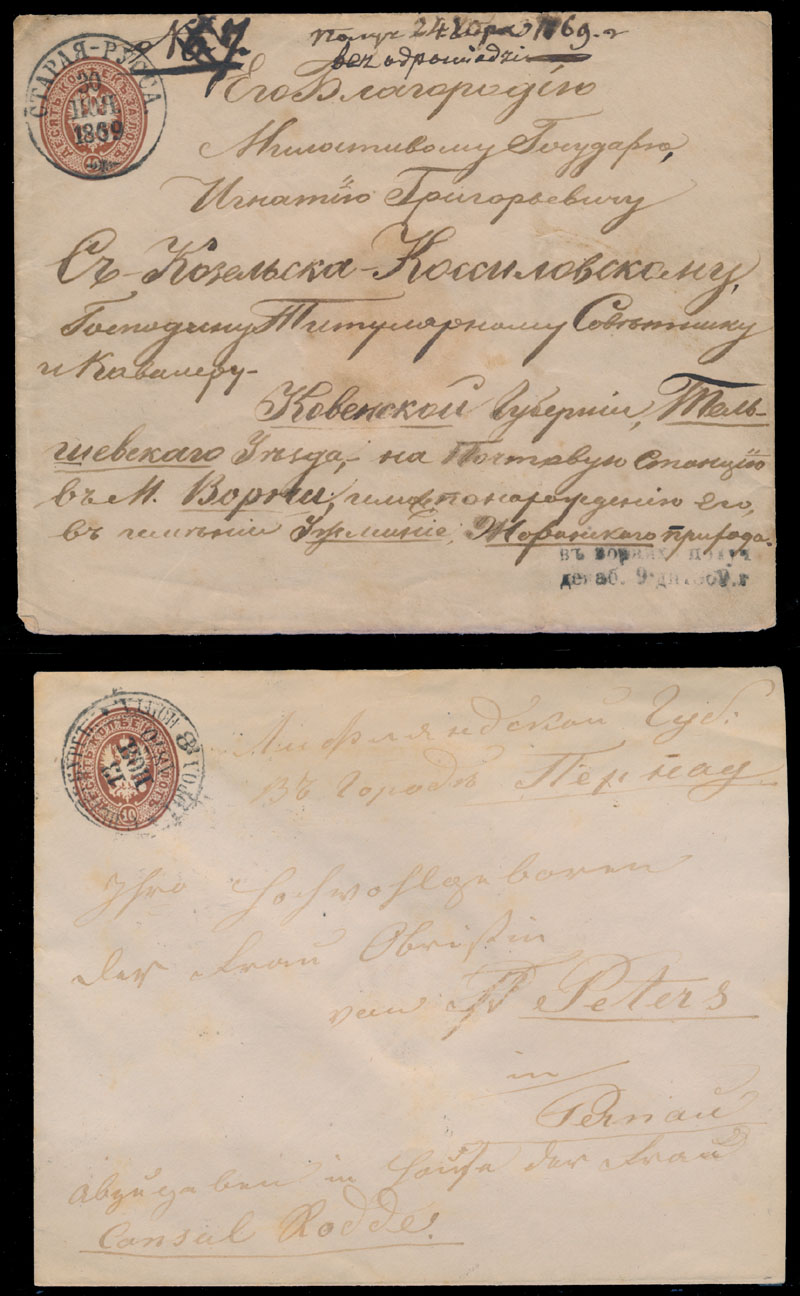 № 67.
Получ 24 1869. г
СТАРАЯ-РУССА.
30
НОЯ
1869
ДЕСЯТЬ КОПѢЕКЪ ЗА ЛОТЪ
Его Благородію
Милостивому Государю,
Игнатію Григорьевичу
Съ-Козельска-Коссиловскому,
Господину Титулярному Совѣтнику
и Кавалеру-
Ковенской Губерніи, Тель-
шевскаго Уѣзда,- на Почтовую Станцію
въ М. Ворни,
въ имѣніи Жоранскаго прихода.
въ ворнях. получ
декаб. 9 дня 69.г
13
НОЯ
ДЕСЯТЬ КОПѢЕКЪ ЛОТЪ
10
Лифляндской Губ:
Въ Городѣ Пернау.
Ihro Hochwohlgeboren
der Frau Obristin
von Peters
in
Pernau
abzugeben im Hause der Frau
Consul Rodde.